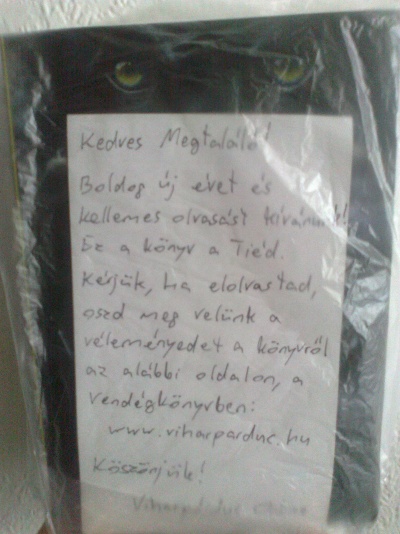 Kedves Megtaláló!
Boldog új évet és
kellemes olvasást kívánunk!
Ez a könyv a Tiéd.
Kérjük, ha elolvastad,
oszd meg velünk a
véleményedet a könyvről
az alábbi oldalon, a
vendégkönyvben:
www.viharparduc.hu
Köszönjük!
Viharpárduc